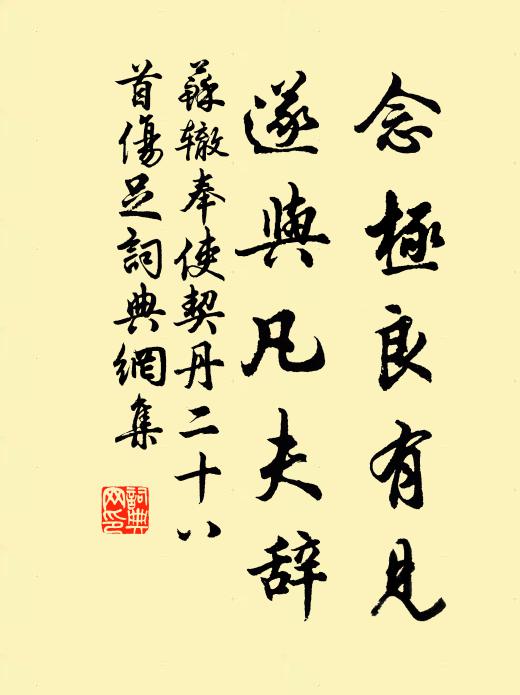 念極良有見
遂與凡夫辞
蘇辙奉使契丹二十八
首傷足詞典網集
詞典
网印